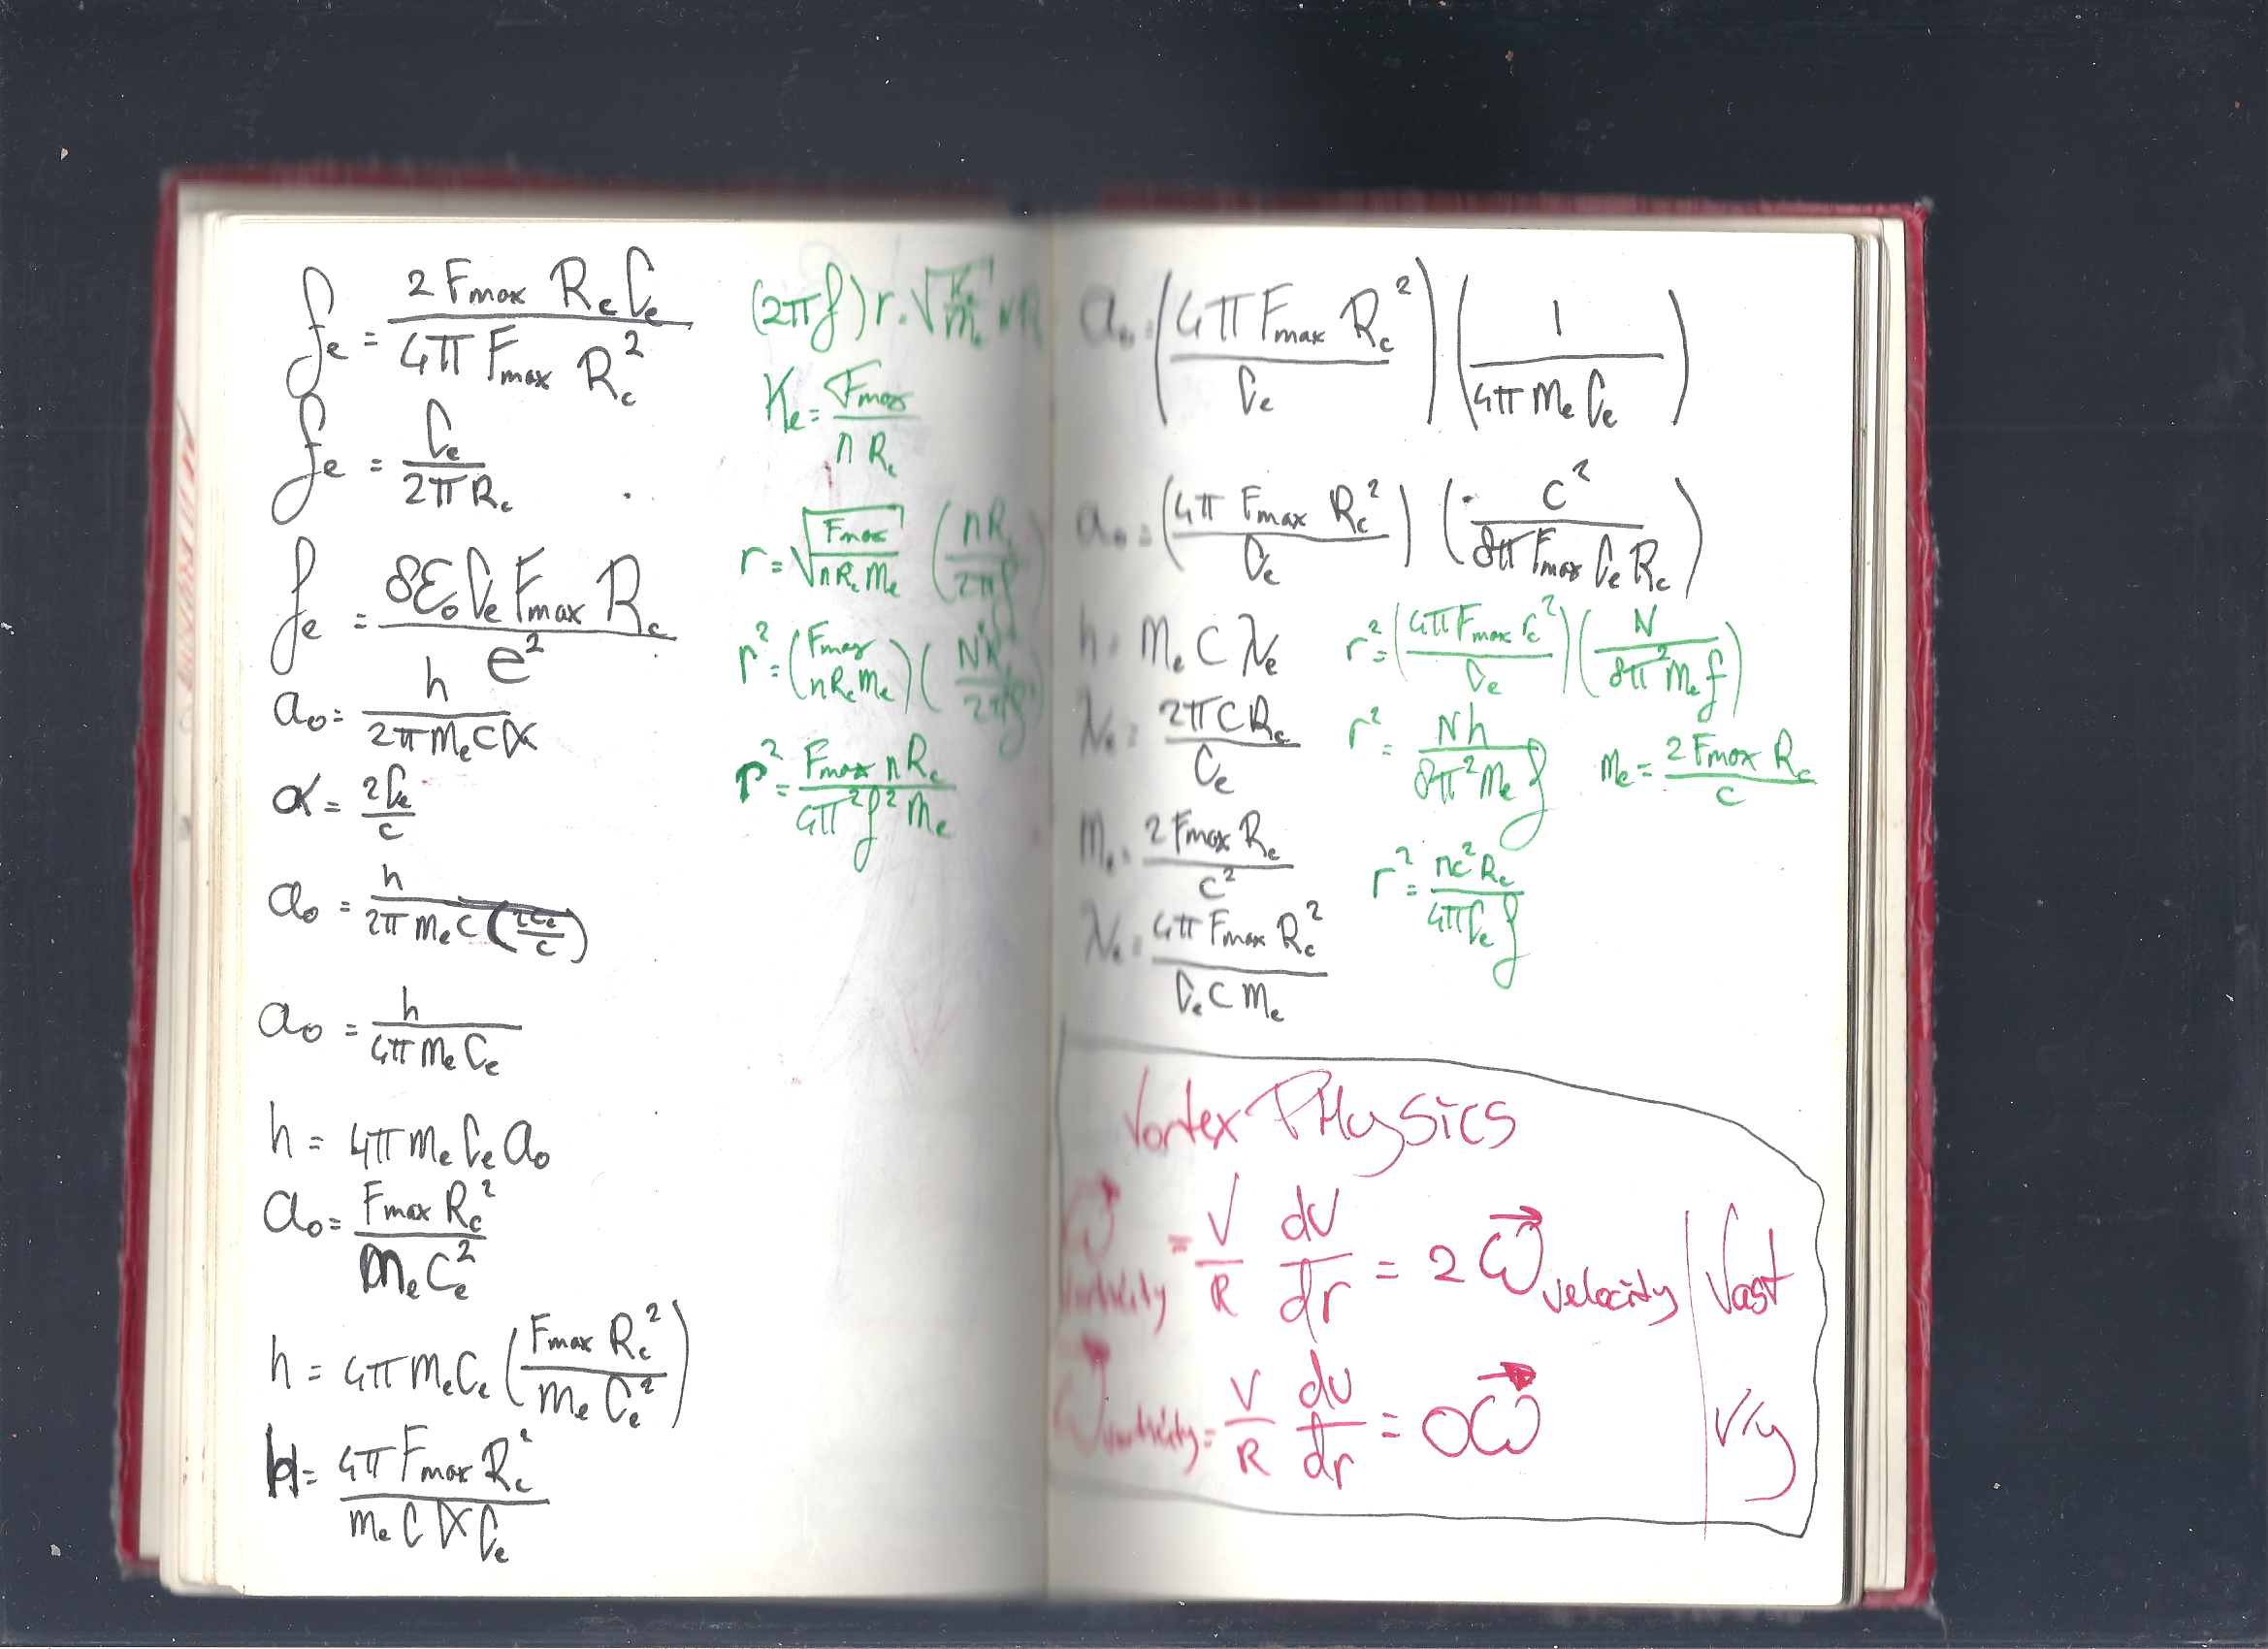 fₑ = 2 Fmax Rc Cₑ / 4π Fmax Rc²
fₑ = Cₑ / 2π Rc
fₑ = 8ε₀ Cₑ Fmax Rc / e²
a₀ = h / 2π Mₑ c α
α = 2Cₑ / c
a₀ = h / 2π Mₑ c (2Cₑ / c)
a₀ = h / 4π Mₑ Cₑ
h = 4π Mₑ Cₑ a₀
a₀ = Fmax Rc² / Mₑ Cₑ²
h = 4π Mₑ Cₑ (Fmax Rc² / Mₑ Cₑ²)
h = 4π Fmax Rc² / Mₑ C α Cₑ
Kₑ = Fmax / n Rc
r = √(Fmax / n Rc Mₑ) (n Rc / 2πf)
r² = Fmax n Rc / 4π² f² Mₑ
a₀ = (4π Fmax Rc² / Cₑ) (1 / 4π Mₑ Cₑ)
a₀ = (4π Fmax Rc² / Cₑ) (c² / 8π Fmax Cₑ Rc)
h = Mₑ C λₑ
λₑ = 2π C Rc / Cₑ
Mₑ = 2 Fmax Rc / c²
λₑ = 4π Fmax Rc² / Cₑ C Mₑ
r² = (4π Fmax rc² / Cₑ) (N / 8π² Mₑ f)
r² = N h / 8π² Mₑ f
Mₑ = 2 Fmax Rc / c
r² = n c² Rc / 4π Cₑ f
Vortex PHysics
ω⃗ vorticity = V/R dV/dr = 2 ω⃗ velocity | Vast
ω⃗ vorticity = V/R dU/dr = 0 ω⃗ | Vry